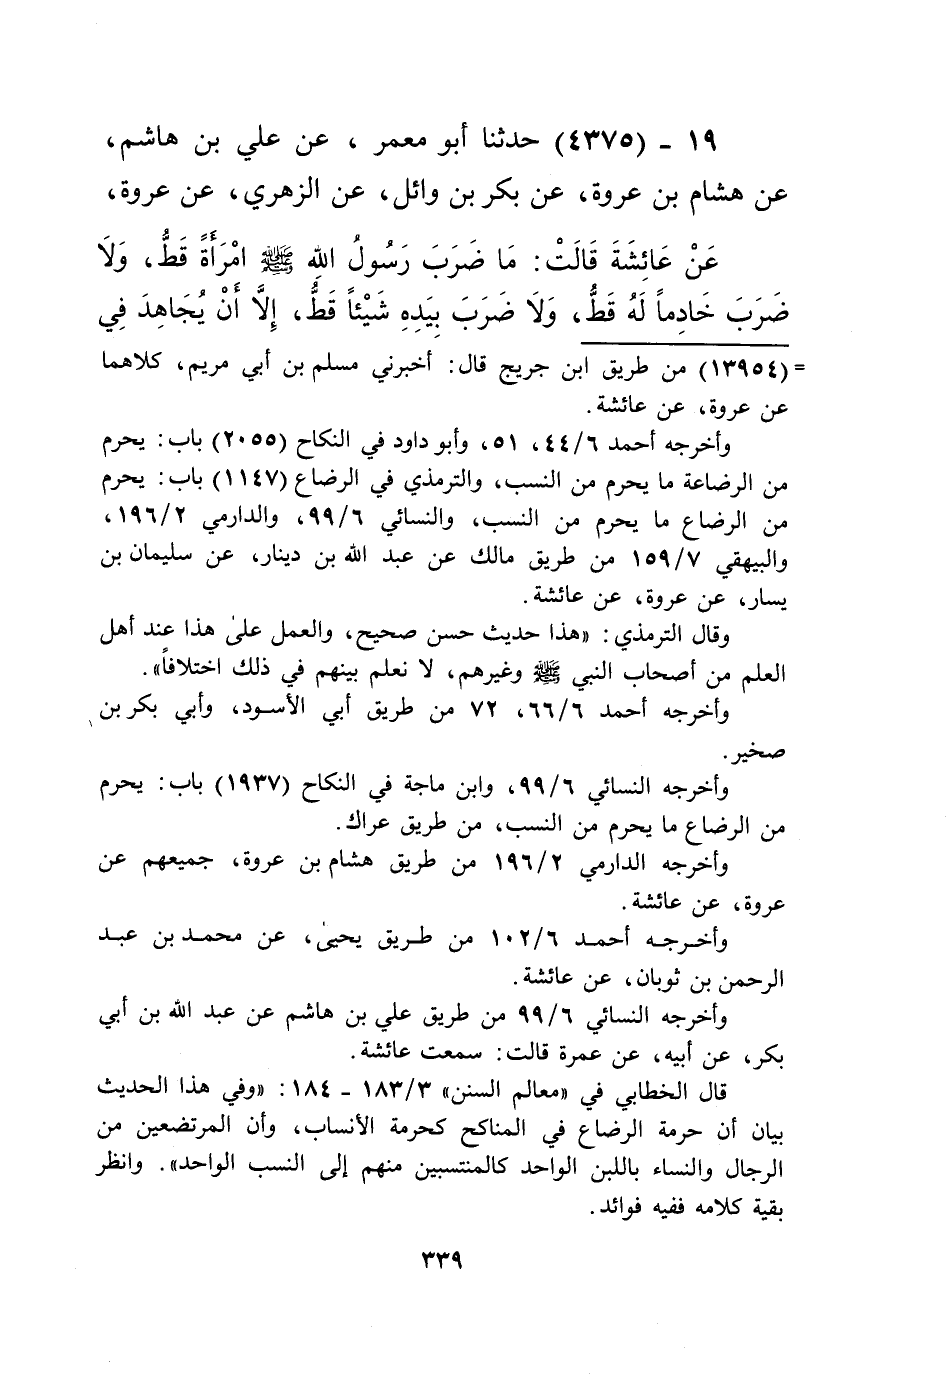 ١٩ ـ (٤٣٧٥) حدثنا أبو معمر ، عن علي بن هاشم،
عن هشام بن عروة، عن بكر بن وائل، عن الزهري، عن عروة،
عَنْ عَائِشَةَ قَالَتْ: مَا ضَرَبَ رَسُولُ اللهِ ﷺ امْرَأَةً قَطُّ، وَلَا
ضَرَبَ خَادِماً لَهُ قَطُّ، وَلَا ضَرَبَ بِيَدِهِ شَيْئاً قَطُّ، إِلَّا أَنْ يُجَاهِدَ فِي
= (١٣٩٥٤) من طريق ابن جريج قال: أخبرني مسلم بن أبي مريم، كلاهما
عن عروة، عن عائشة.
وأخرجه أحمد ٤٤/٦، ٥١، وأبو داود في النكاح (٢٠٥٥) باب: يحرم
من الرضاعة ما يحرم من النسب، والترمذي في الرضاع (١١٤٧) باب: يحرم
من الرضاع ما يحرم من النسب، والنسائي ٩٩/٦، والدارمي ١٩٦/٢،
والبيهقي ١٥٩/٧ من طريق مالك عن عبد الله بن دينار، عن سليمان بن
يسار، عن عروة، عن عائشة.
وقال الترمذي: «هذا حديث حسن صحيح، والعمل علىٰ هذا عند أهل
العلم من أصحاب النبي ﷺ وغيرهم، لا نعلم بينهم في ذلك اختلافاً».
وأخرجه أحمد ٦٦/٦، ٧٢ من طريق أبي الأسود، وأبي بكر بن
صخير.
وأخرجه النسائي ٩٩/٦، وابن ماجة في النكاح (١٩٣٧) باب: يحرم
من الرضاع ما يحرم من النسب، من طريق عراك.
وأخرجه الدارمي ١٩٦/٢ من طريق هشام بن عروة، جميعهم عن
عروة، عن عائشة.
وأخرجه أحمد ١٠٢/٦ من طريق يحيىٰ، عن محمد بن عبد
الرحمن بن ثوبان، عن عائشة.
وأخرجه النسائي ٩٩/٦ من طريق علي بن هاشم عن عبد الله بن أبي
بكر، عن أبيه، عن عمرة قالت: سمعت عائشة.
قال الخطابي في «معالم السنن» ١٨٣/٣ ـ ١٨٤: «وفي هذا الحديث
بيان أن حرمة الرضاع في المناكح كحرمة الأنساب، وأن المرتضعين من
الرجال والنساء باللبن الواحد كالمنتسبين منهم إلى النسب الواحد». وانظر
بقية كلامه ففيه فوائد.
٣٣٩